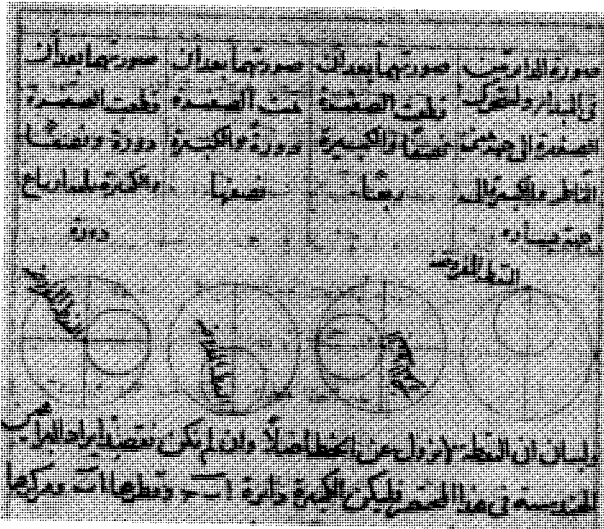 صورة الدائرتين
فى المبدا ولتتحرك
الصغيرة الى جهة يمين
الناظر والكبيرة الى
جهة يساره
صورتهما بعد ان
قطعت الصغيرة
نصفا والكبيرة
ربعا
صورتهما بعد ان
تمت الصغيرة
دورة والكبيرة
نصفها
صورتهما بعد ان
قطعت الصغيرة
دورة ونصفا
والكبيرة ثلثة ارباع
دورة
النقطة المفروضة
النقطة المفروضة
النقطة المفروضة
ولبيان ان النقطة لا تزول عن الخط اصلا وان لم يكن نقصد ايراد البراهين
الهندسية فى هذا المختصر فليكن الكبيرة دائرة ا ب ج وقطرها ا ب ومركزها